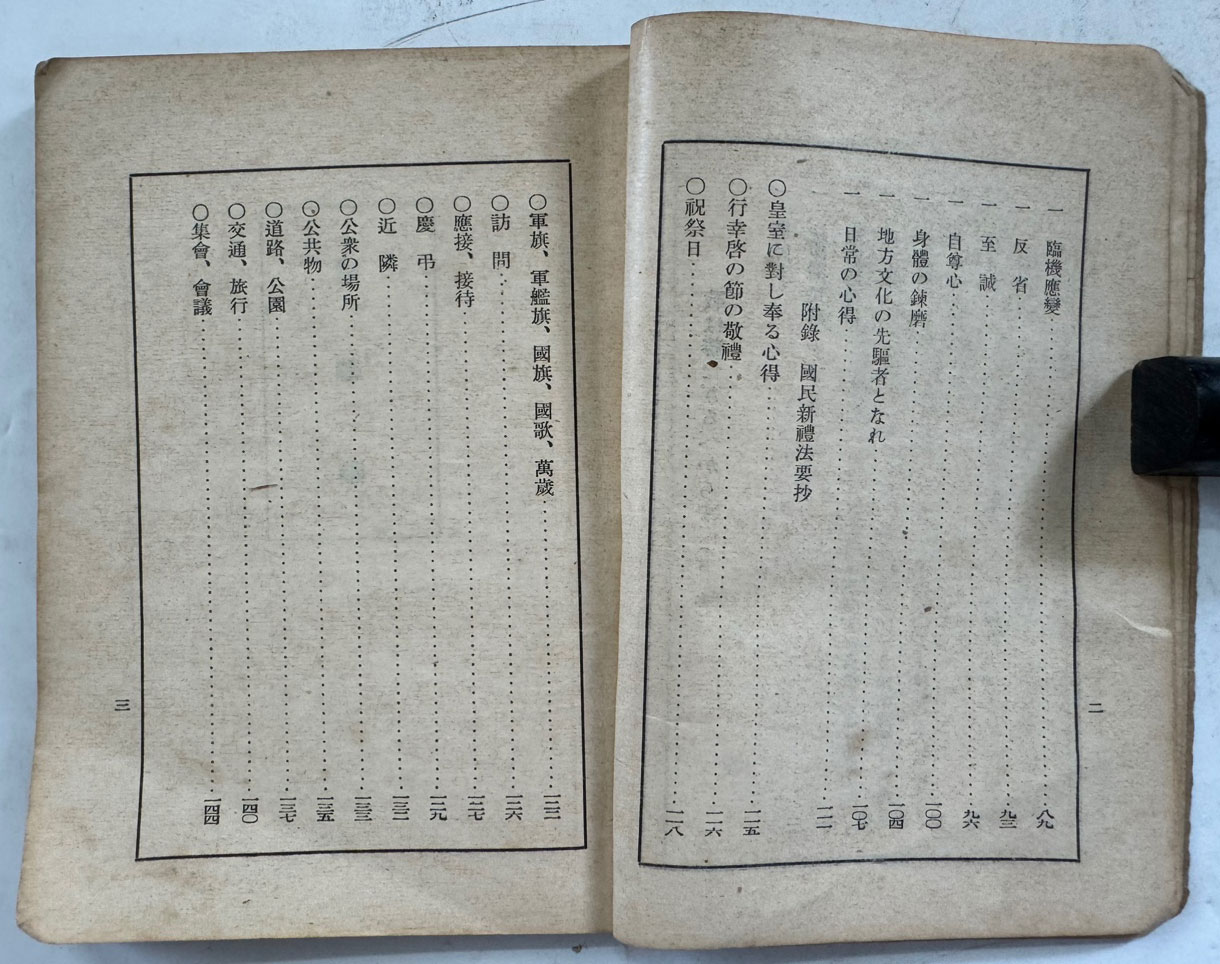 二
一 臨機應變……八九
一 反省……九三
一 至誠……九六
一 自尊心……一〇〇
一 身體の鍊磨……一〇四
一 地方文化の先驅者となれ……一〇七
一 日常の心得……一一一
附錄 國民新禮法要抄
〇皇室に對し奉る心得……一一五
〇行幸啓の節の敬禮……一一六
〇祝祭日……一一八
〇軍旗、軍艦旗、國旗、國歌、萬歲……一二二
〇訪問……一二六
〇應接、接待……一二七
〇慶弔……一二九
〇近隣……一三二
〇公衆の場所……一三三
〇公共物……一三五
〇道路、公園……一三七
〇交通、旅行……一四〇
〇集會、會議……一四四
三